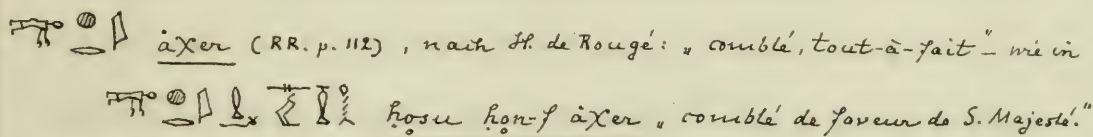 åχer (RR. p. 112), nach H. de Rougé: „comblé, tout-à-fait" – wie in
ḥosu ḥon-f åχer „comblé de faveur de S. Majesté."